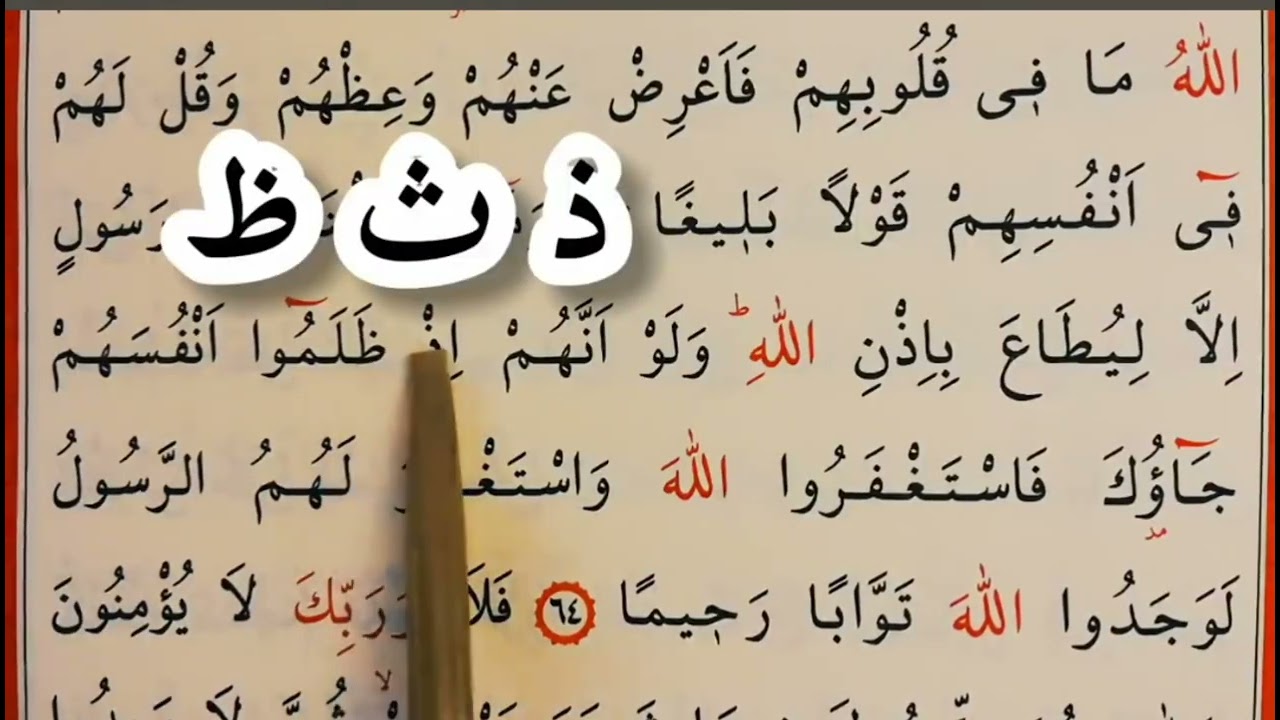 اللّٰهُ مَا فٖى قُلُوبِهِمْ فَاَعْرِضْ عَنْهُمْ وَعِظْهُمْ وَقُلْ لَهُمْ
فٖٓى اَنْفُسِهِمْ قَوْلًا بَلٖيغًا رَسُولٍ
ذ ث ظ
اِلَّا لِيُطَاعَ بِاِذْنِ اللّٰهِؕ وَلَوْ اَنَّهُمْ اِذْ ظَلَمُٓوا اَنْفُسَهُمْ
جَٓاؤُكَ فَاسْتَغْفَرُوا اللّٰهَ لَهُمُ الرَّسُولُ
لَوَجَدُوا اللّٰهَ تَوَّابًا رَحٖيمًا ٦٤ لَا يُؤْمِنُونَ